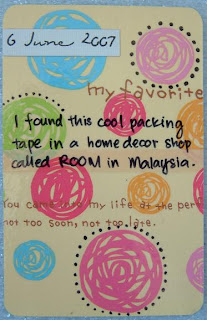 6 June 2007
my favorite
I found this cool packing
tape in a home decor shop
called ROOM in Malaysia.
You came into my life at the perf
not too soon, not too late.